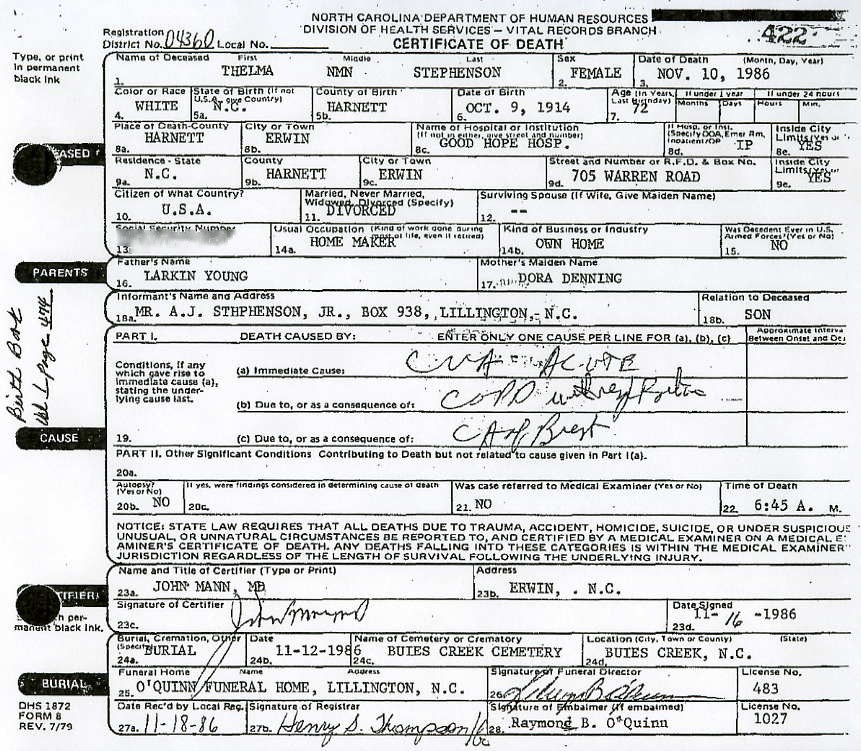 NORTH CAROLINA DEPARTMENT OF HUMAN RESOURCES
DIVISION OF HEALTH SERVICES – VITAL RECORDS BRANCH
CERTIFICATE OF DEATH
422
Registration
District No. 04360 Local No.
Type, or print
in permanent
black ink
Name of Deceased First Middle Last Sex Date of Death (Month, Day, Year)
1. THELMA NMN STEPHENSON 2. FEMALE 3. NOV. 10, 1986
Color or Race State of Birth (If not U.S.A., give Country) County of Birth Date of Birth Age (In Years, Last Birthday) If under 1 year Months Days If under 24 hours Hours Min.
4. WHITE 5a. N.C. 5b. HARNETT 6. OCT. 9, 1914 7. 72
Place of Death-County City or Town Name of Hospital or Institution (If not in either, give street and number) If Hosp. or Inst. (Specify DOA, Emer Rm, Inpatient/OP Inside City Limits (Yes or
8a. HARNETT 8b. ERWIN 8c. GOOD HOPE HOSP. 8d. IP 8e. YES
EASED
Residence - State County City or Town Street and Number or R.F.D. & Box No. Inside City Limits (Yes
9a. N.C. 9b. HARNETT 9c. ERWIN 9d. 705 WARREN ROAD 9e. YES
Citizen of What Country? Married, Never Married, Widowed, Divorced (Specify) Surviving Spouse (If Wife, Give Maiden Name)
10. U.S.A. 11. DIVORCED 12. --
Social Security Number Usual Occupation (Kind of work done during most of life, even if retired) Kind of Business or Industry Was Decedent Ever in U.S. Armed Forces? (Yes or No)
13 14a. HOME MAKER 14b. OWN HOME 15. NO
PARENTS
Father's Name Mother's Maiden Name
16. LARKIN YOUNG 17. DORA DENNING
Informant's Name and Address Relation to Deceased
18a. MR. A.J. STHPHENSON, JR., BOX 938, LILLINGTON, N.C. 18b. SON
Birth Book
Vol L page 474
PART I. DEATH CAUSED BY: ENTER ONLY ONE CAUSE PER LINE FOR (a), (b), (c) Approximate Interva
Between Onset and De
Conditions, if any
which gave rise to
immediate cause (a),
stating the under-
lying cause last.
(a) Immediate Cause: CVA ACUTE
(b) Due to, or as a consequence of: COPD with resp
CAUSE
19. (c) Due to, or as a consequence of: CA of Brest
PART II. Other Significant Conditions Contributing to Death but not related to cause given in Part I(a).
20a.
Autopsy? (Yes or No) If yes, were findings considered in determining cause of death Was case referred to Medical Examiner (Yes or No) Time of Death
20b. NO 20c. 21. NO 22. 6:45 A. M.
NOTICE: STATE LAW REQUIRES THAT ALL DEATHS DUE TO TRAUMA, ACCIDENT, HOMICIDE, SUICIDE, OR UNDER SUSPICIOUS
UNUSUAL, OR UNNATURAL CIRCUMSTANCES BE REPORTED TO, AND CERTIFIED BY A MEDICAL EXAMINER ON A MEDICAL E
AMINER'S CERTIFICATE OF DEATH. ANY DEATHS FALLING INTO THESE CATEGORIES IS WITHIN THE MEDICAL EXAMINER'
JURISDICTION REGARDLESS OF THE LENGTH OF SURVIVAL FOLLOWING THE UNDERLYING INJURY.
Name and Title of Certifier (Type or Print) Address
23a. JOHN MANN, MD 23b. ERWIN, . N.C.
TIFIER
per-
manent black ink.
Signature of Certifier Date Signed
23c. 23d. 11- 16 -1986
Burial, Cremation, Other (Specify) Date Name of Cemetery or Crematory Location (City, Town or County) (State)
24a. BURIAL 24b. 11-12-1986 24c. BUIES CREEK CEMETERY 24d. BUIES CREEK, N.C.
BURIAL
Funeral Home Name Address Signature of Funeral Director License No.
25. O'QUINN FUNERAL HOME, LILLINGTON, N.C. 26. 483
DHS 1872
FORM 8
REV. 7/79
Date Rec'd by Local Reg. Signature of Registrar Signature of Embalmer (If embalmed) License No.
27a. 11-18-86 27b. Henry S. Thompson 28. Raymond B. O'Quinn 1027